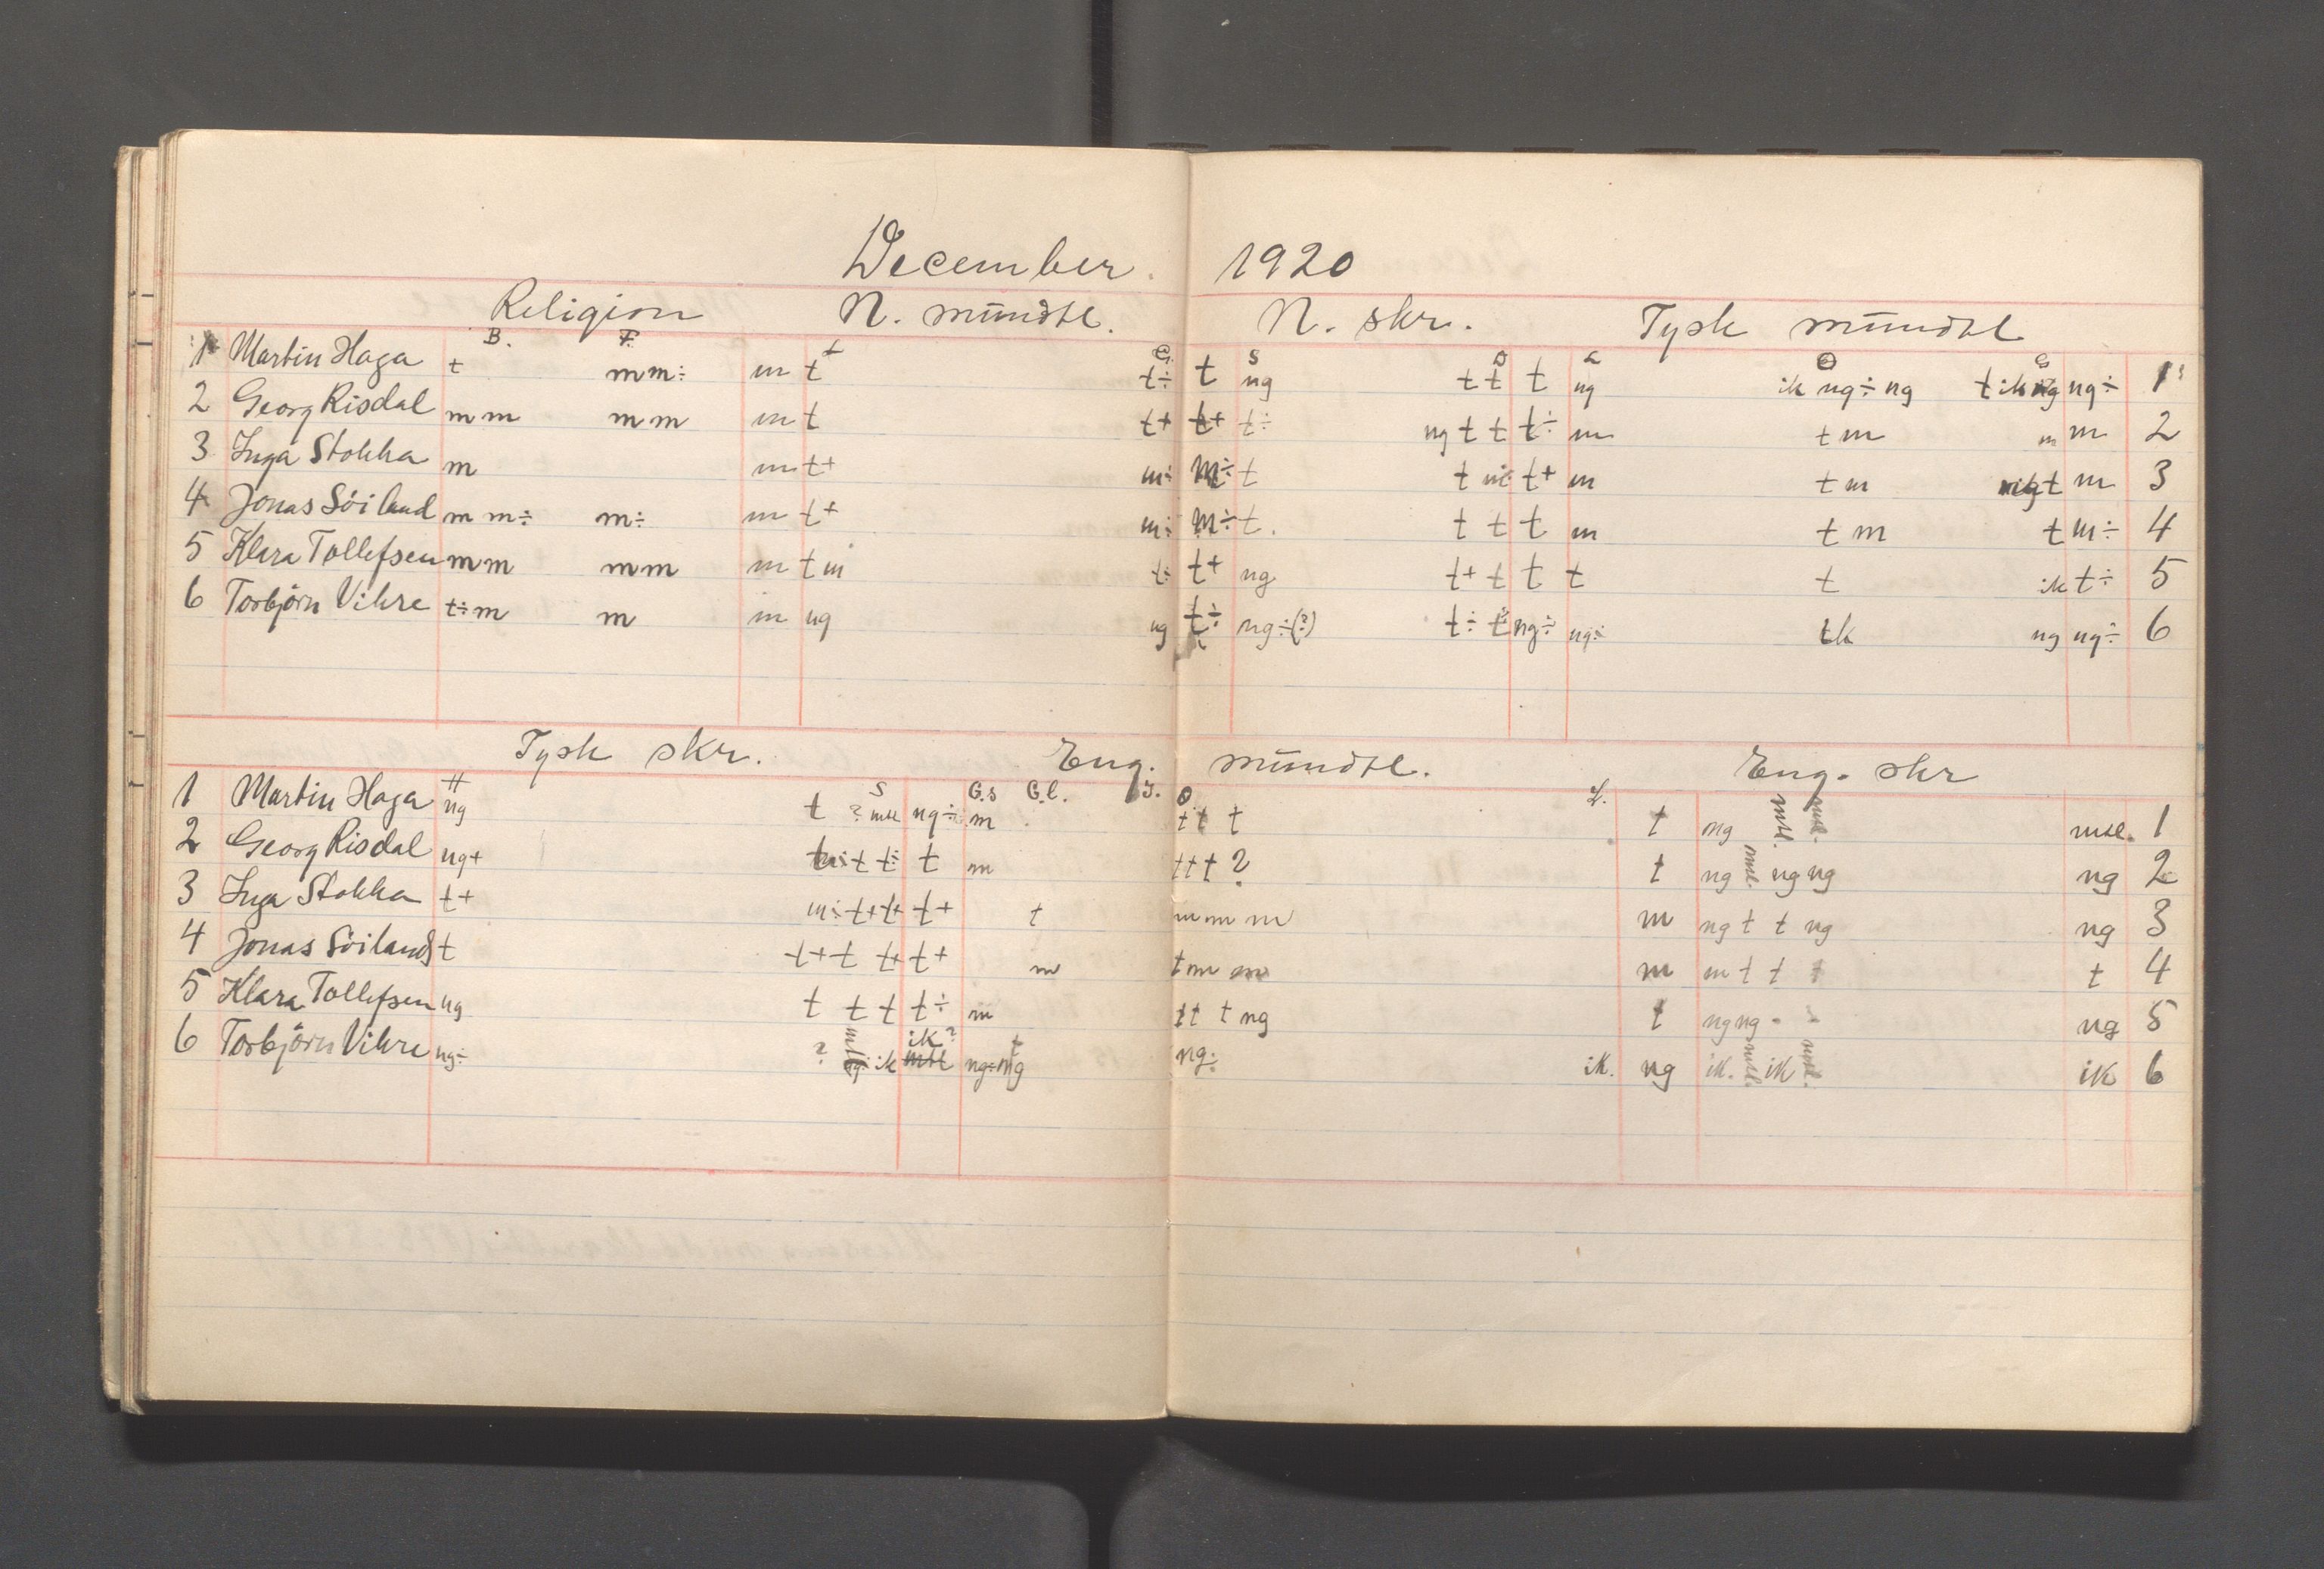 December. 1920
Religion N. mündtl. N. skr. Tysk mündtl
B. F. t G. S D L O G
1 Martin Haga t m m÷ m t t÷ t ng t t t ng ik ng÷ ng t ik ng ng÷ 1
2 Georg Risdal m m m m m t t+ t+ t÷ ng t t t÷ m t m m m 2
3 Inga Stokka m m t+ m÷ m÷ t t m t+ m t m t m 3
4 Jonas Söiland m m÷ m÷ m t+ m÷ m÷ t. t t t m t m t m÷ 4
5 Klara Tollefsen m m m m m t m t÷ t+ ng t+ t t t t ik t÷ 5
6 Torbjörn Vikre t÷ m m m ng ng t÷ ng÷(?) t÷ t ng÷ ng÷ ng ng÷ 6
Tysk skr. Eng. mündtl. Eng. skr
H S G.s G.l. J. O L.
1 Martin Haga ng t ? mtl ng÷ m t t t t ng mtl. mtl. mtl. 1
2 Georg Risdal ng+ t t÷ t m t t t ? t ng mtl. ng ng ng 2
3 Inga Stokka t+ m÷ t+ t+ t+ t m m m m ng t t ng ng 3
4 Jonas Söiland t t+ t t+ t+ m t m m m m t t t t 4
5 Klara Tollefsen ng t t t t÷ m t t t ng t ng ng - - ng 5
6 Torbjörn Vikre ng÷ ? mtl ik ik? mtl ng÷ ng ng÷ ik. ng ik. mtl. ik mtl. ik 6